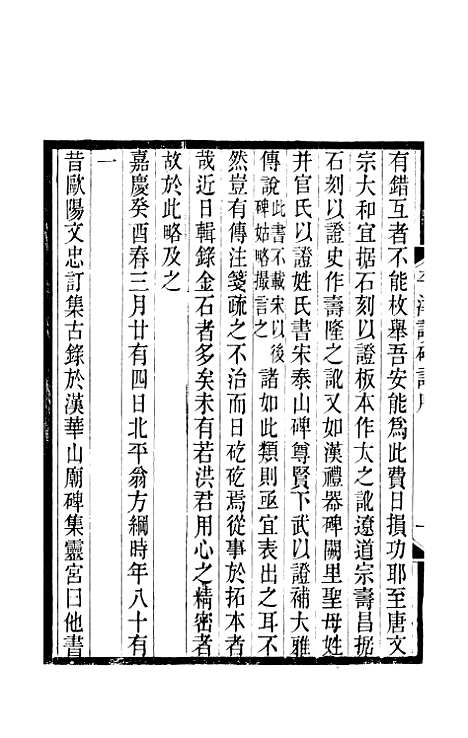 有錯互者不能枚舉吾安能爲此費日損功耶至唐文
宗大和宜据石刻以證板本作太之訛遼道宗壽昌据
石刻以證史作壽隆之訛又如漢禮器碑闕里聖母姓
并官氏以證姓氏書宋泰山碑尊賢下武以證補大雅
傳說此書不載宋以後碑姑略撮言之諸如此類則亟宜表出之耳不
然豈有傳注箋疏之不治而日矻矻焉從事於拓本者
哉近日輯錄金石者多矣未有若洪君用心之精密者
故於此略及之
嘉慶癸酉春三月廿有四日北平翁方綱時年八十有
一
昔歐陽文忠訂集古錄於漢華山廟碑集靈宮曰他書
平津讀碑記